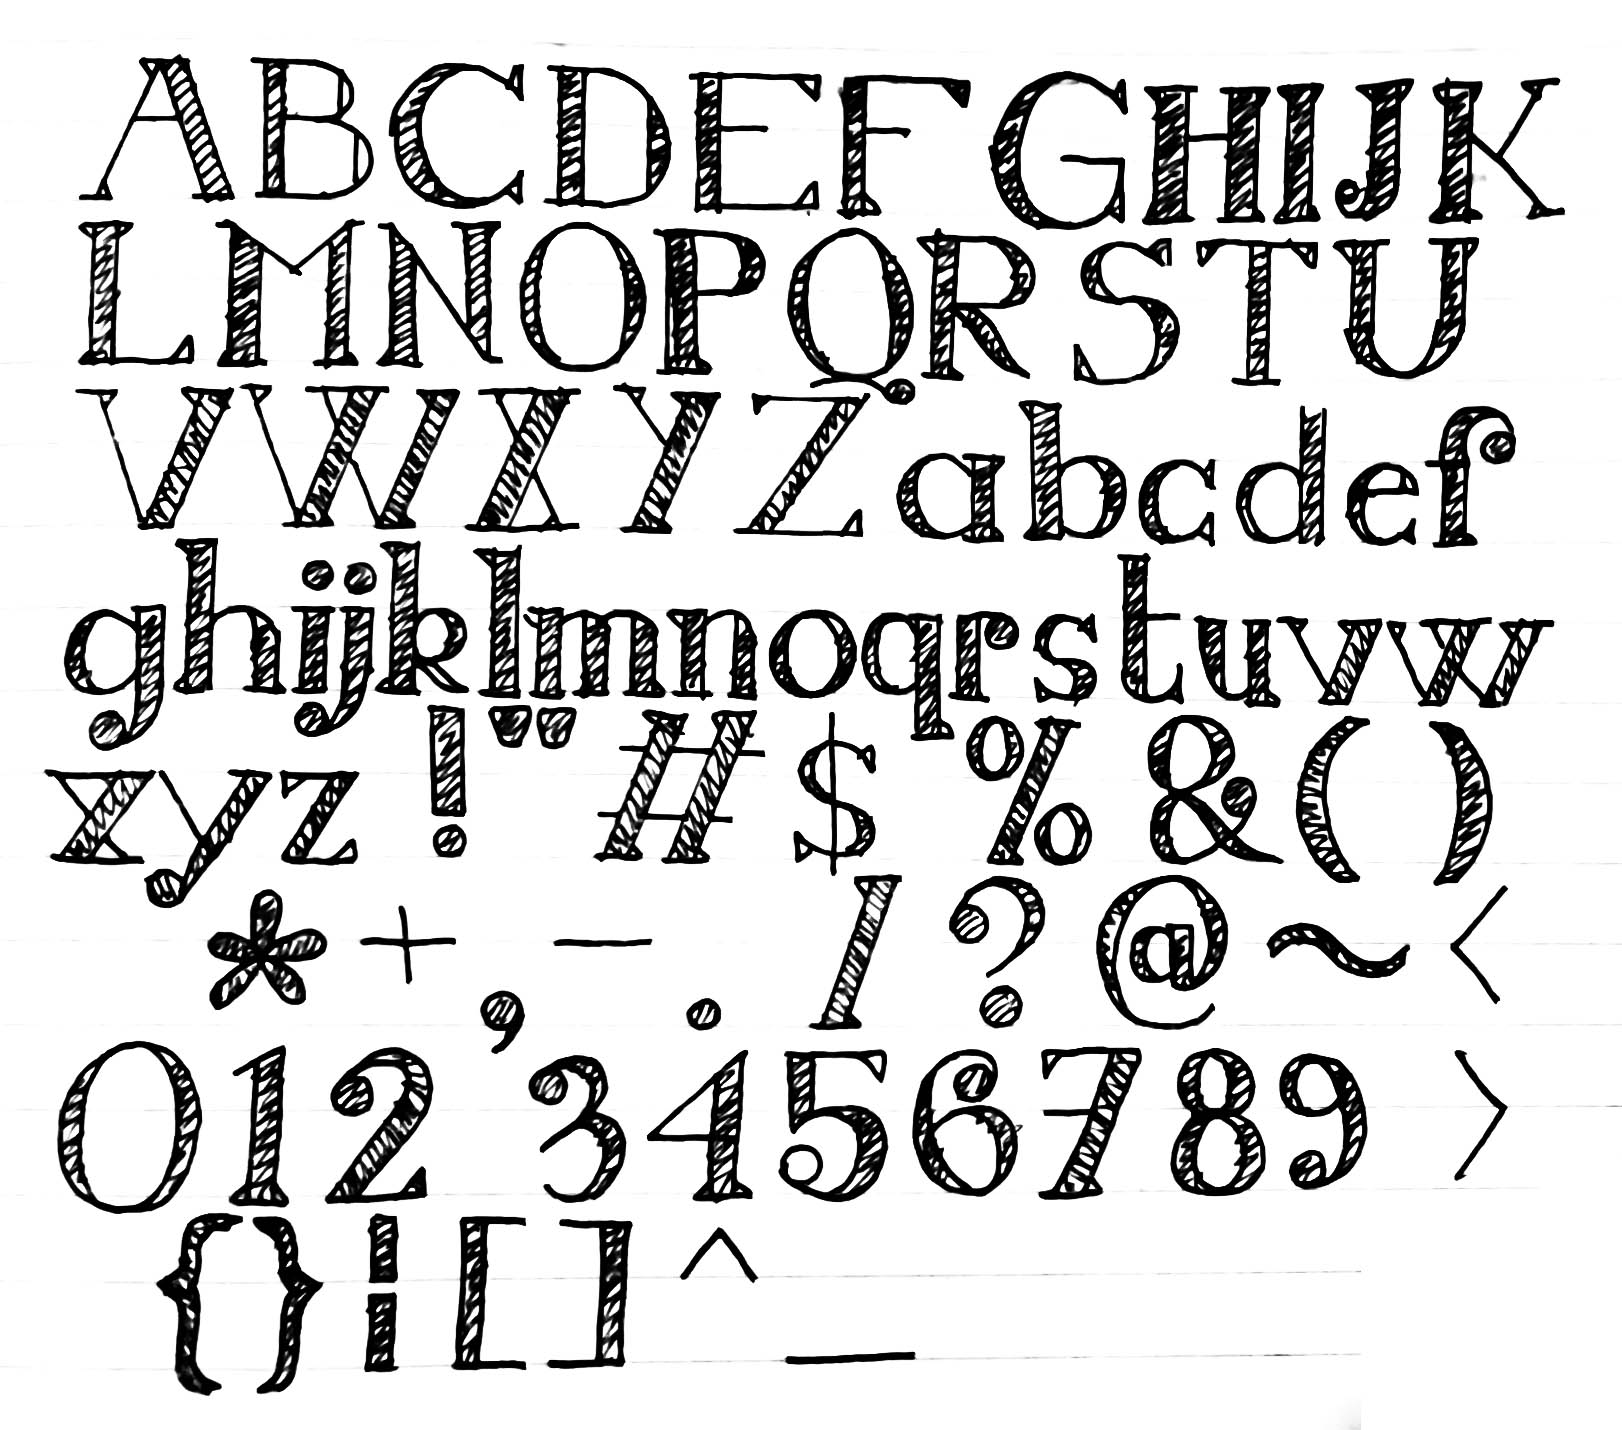 ABCDEFGHIJK
LMNOPQRSTU
VWXYZabcdef
ghijklmnopqrstuvw
xyz!"#$%&()
*+,-./?@~<
0123456789>
{}¦[]^_